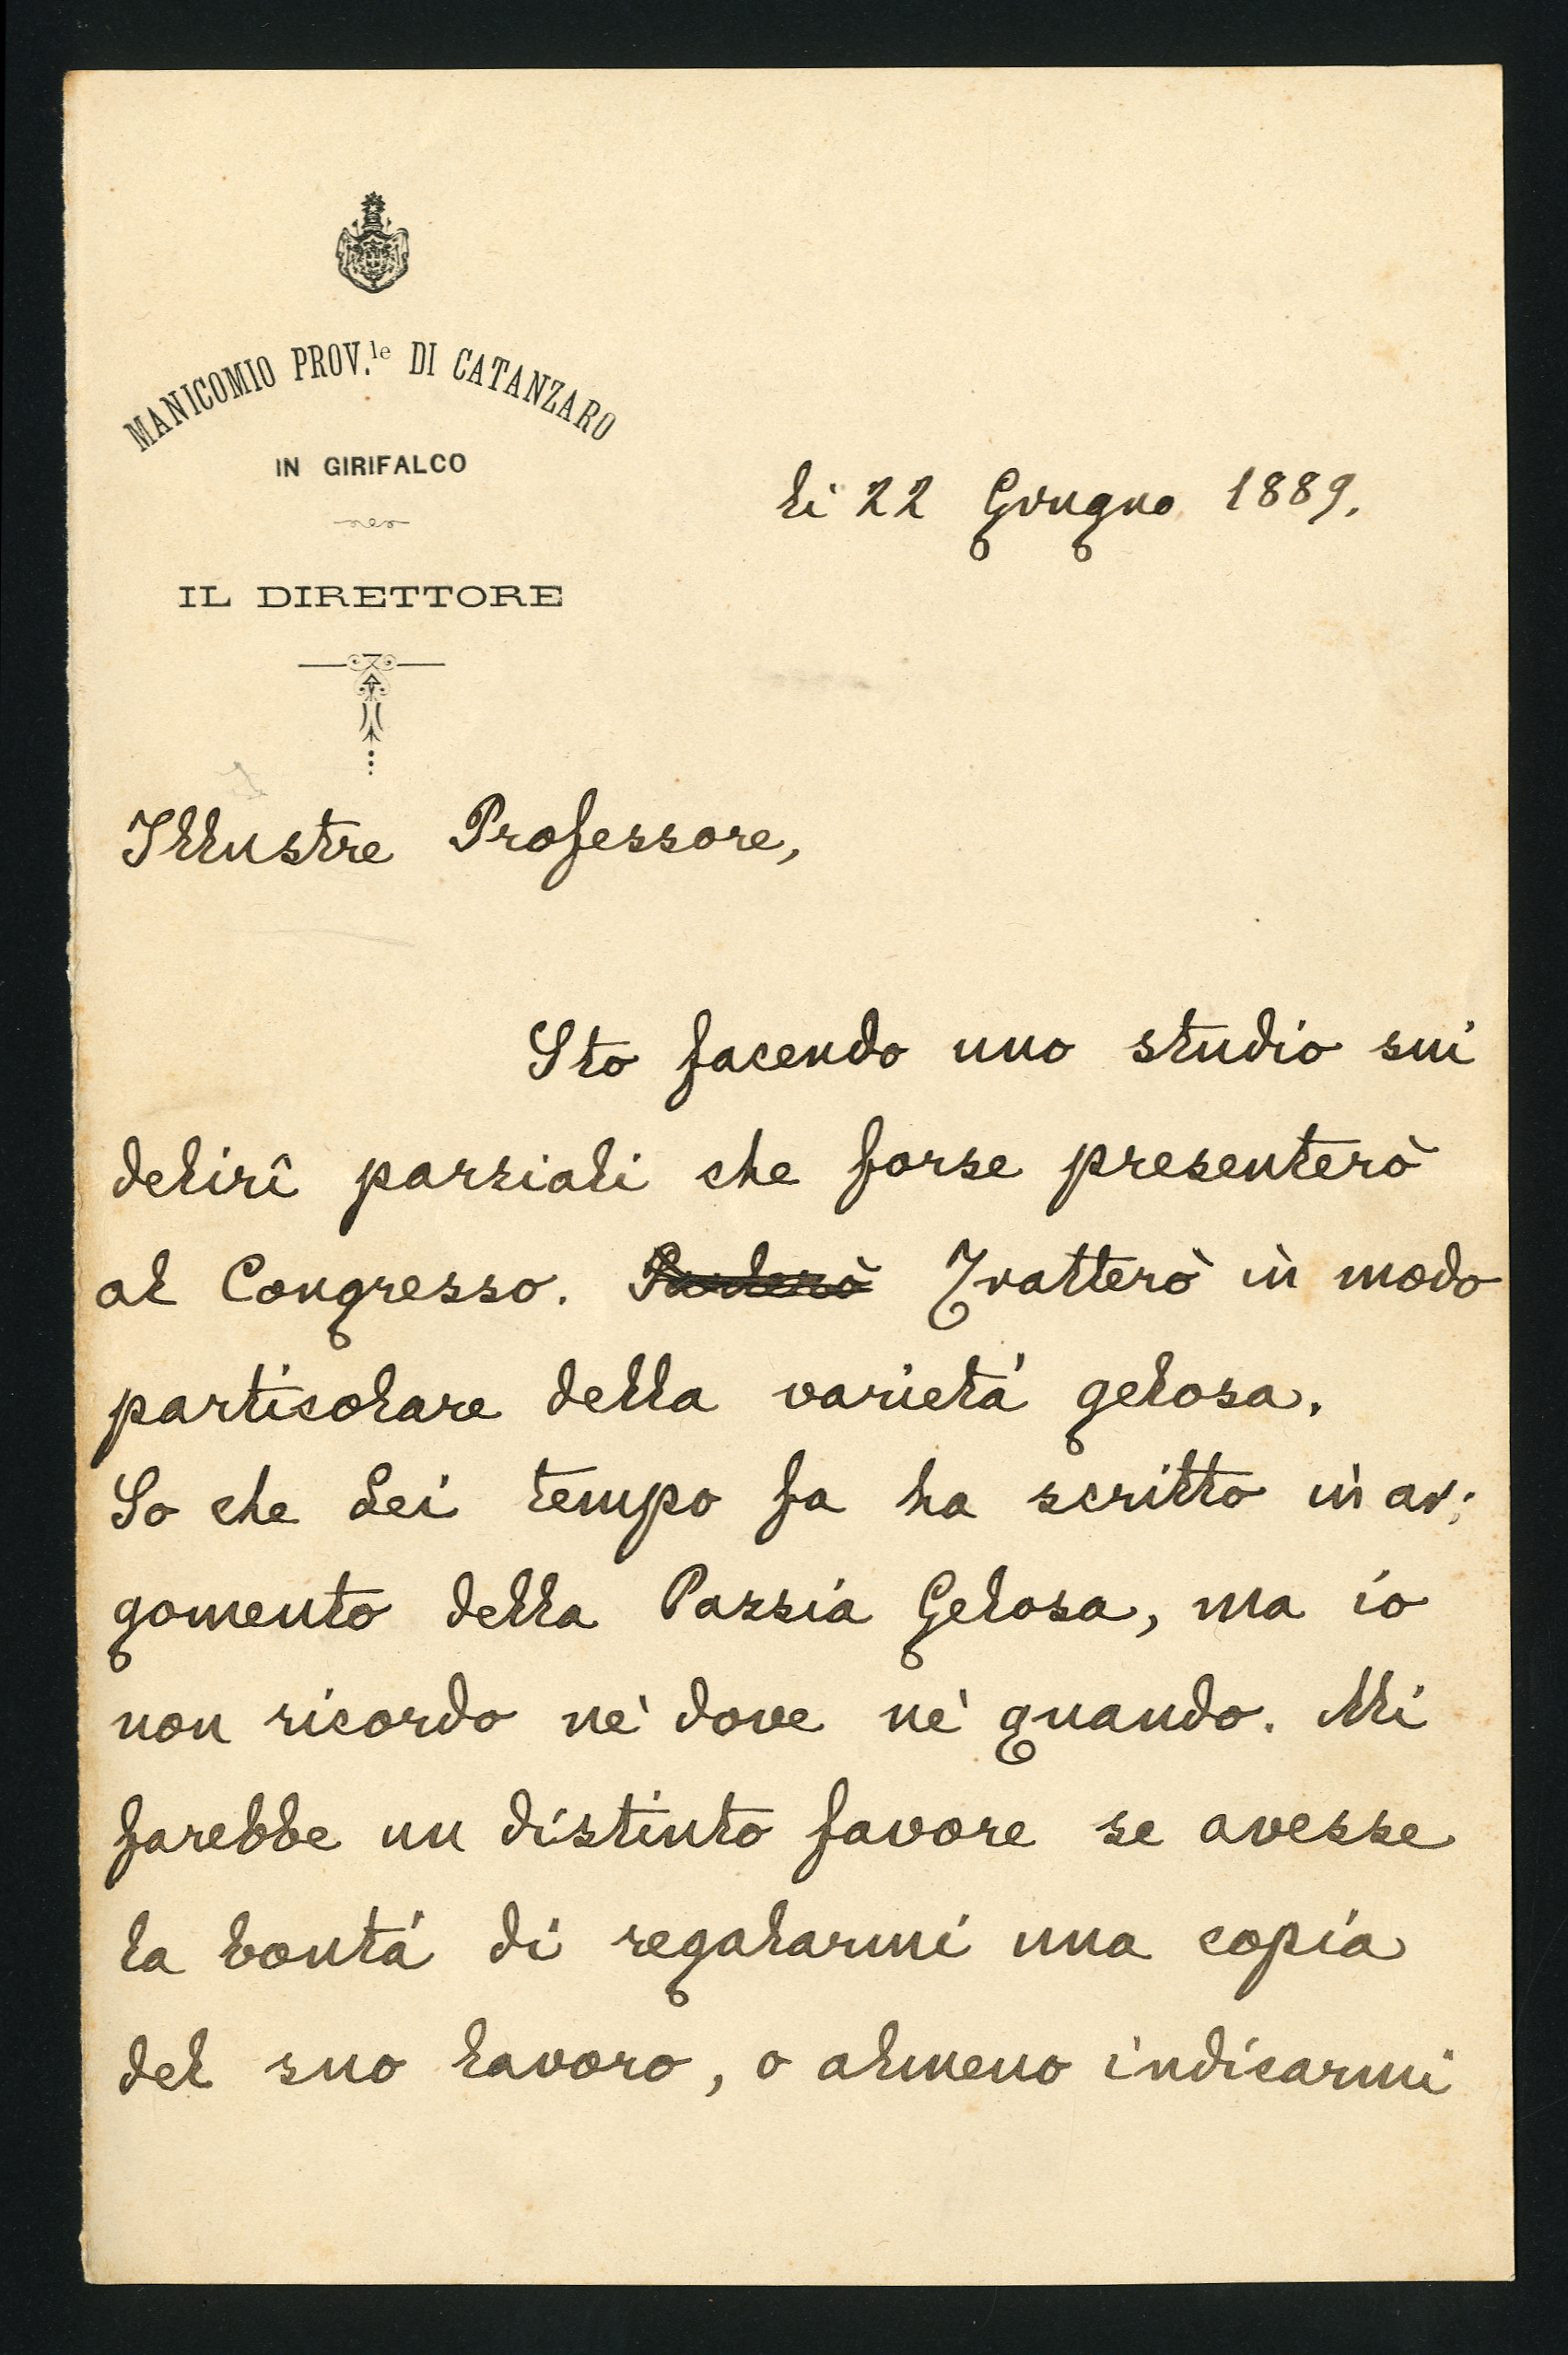 MANICOMIO PROV.le DI CATANZARO
IN GIRIFALCO
IL DIRETTORE
li 22 Giugno 1889.
Illustre Professore,
Sto facendo uno studio sui
delirî parziali che forse presenterò
al Congresso. Parlerò Tratterò in modo
particolare della varietá gelosa.
So che Lei tempo fa ha scritto in ar:
gomento della Pazzia Gelosa, ma io
non ricordo nè dove nè quando. Mi
farebbe un distinto favore se avesse
la bontá di regalarmi una copia
del suo lavoro, o almeno indicarmi